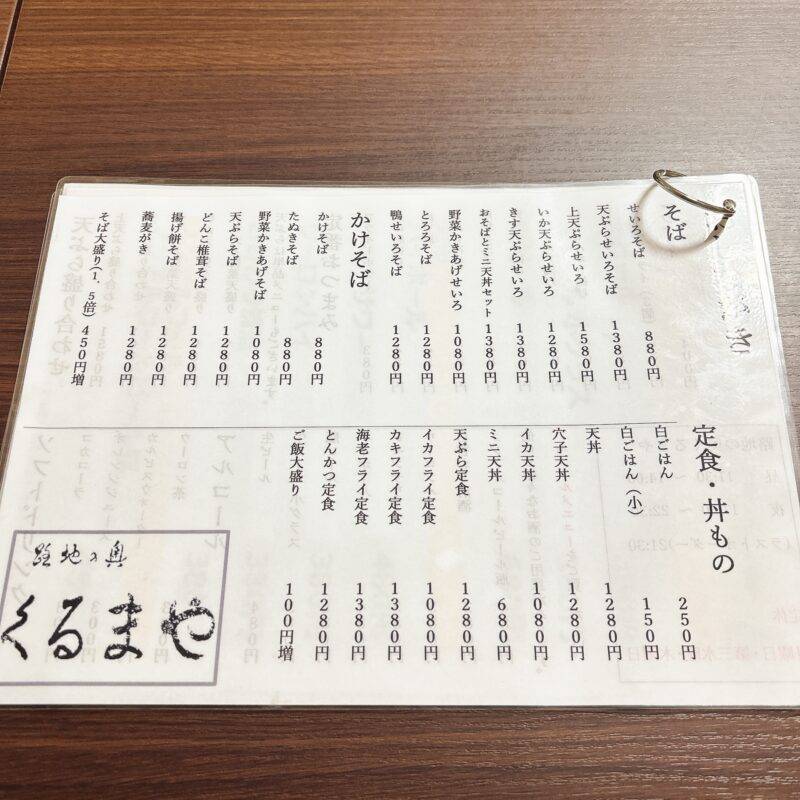 そば
せいろそば 880円
天ぷらせいろそば 1380円
上天ぷらせいろ 1580円
いか天ぷらせいろ 1280円
きす天ぷらせいろ 1380円
おそばとミニ天丼セット 1380円
野菜かきあげせいろ 1080円
とろろそば 1280円
鴨せいろそば 1280円
かけそば
かけそば 880円
たぬきそば 880円
野菜かきあげそば 1080円
天ぷらそば 1280円
どんこ椎茸そば 1280円
揚げ餅そば 1280円
蕎麦がき 1280円
そば大盛り(1.5倍) 450円増
定食・丼もの
白ごはん 250円
白ごはん(小) 150円
天丼 1280円
穴子天丼 1280円
イカ天丼 1080円
ミニ天丼 680円
天ぷら定食 1280円
イカフライ定食 1080円
カキフライ定食 1380円
海老フライ定食 1380円
とんかつ定食 1280円
ご飯大盛り 100円増
路地の奥
くるまや